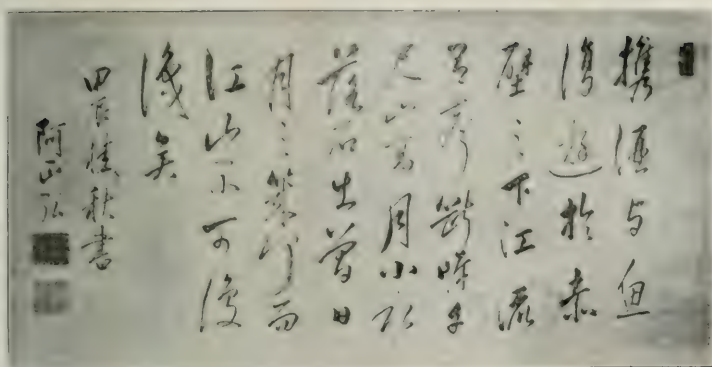 携酒与魚
復遊於赤
壁之下江流
有聲斷岸千
尺山高月小水
落石出曽日
月之幾何而
江山不可復
識矣
甲秋書
阿正弘